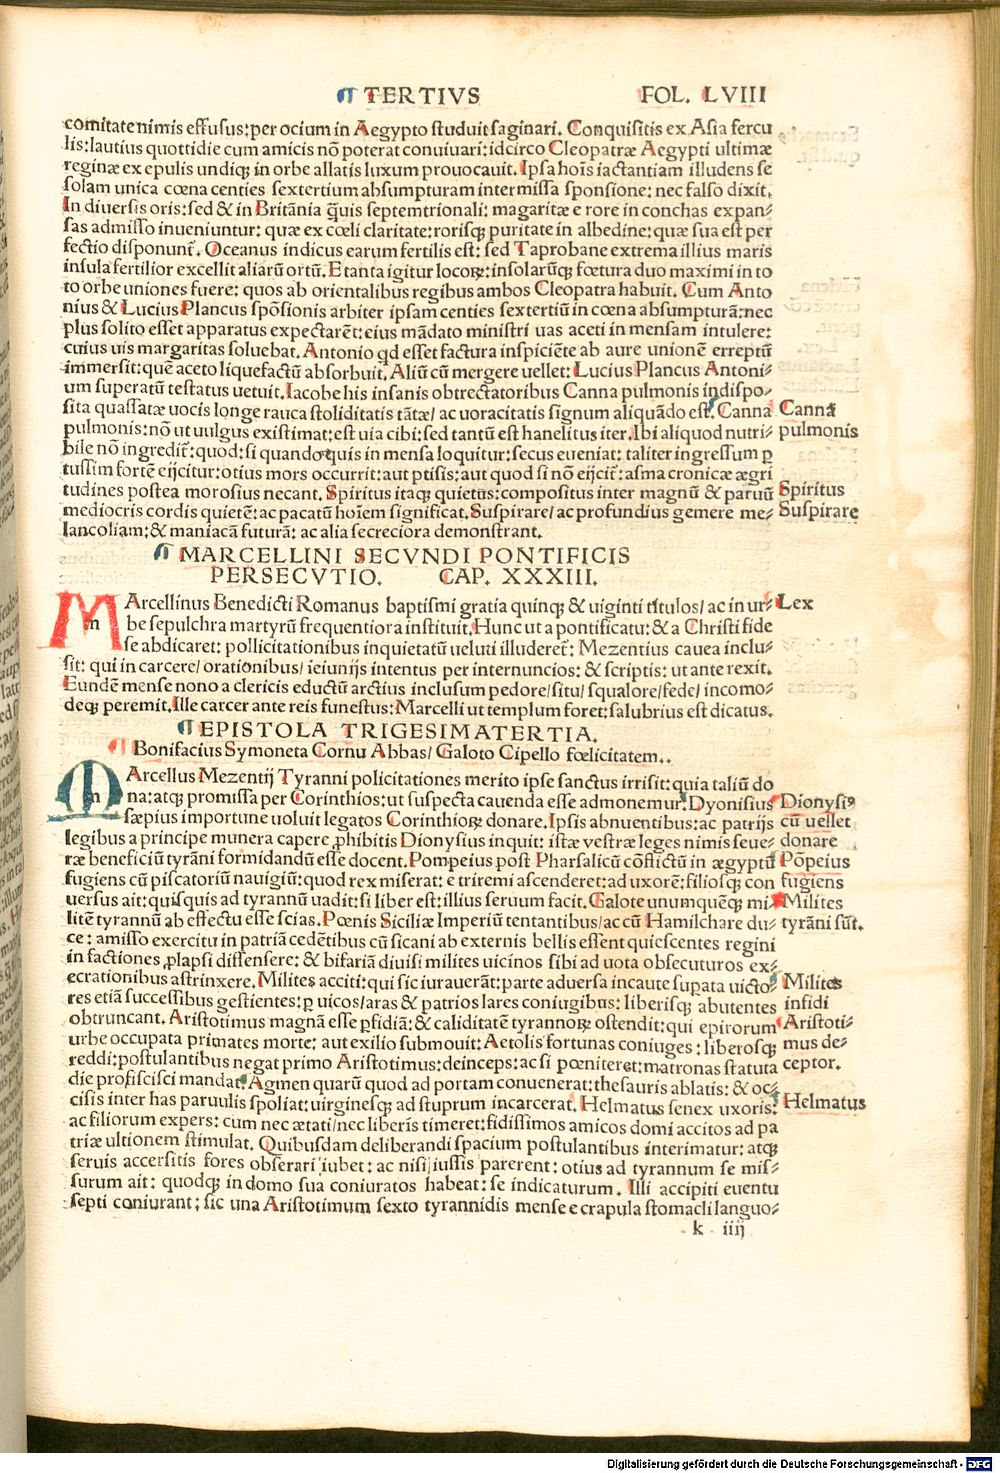 ¶ TERTIVS FOL. LVIII
comitate nimis effusus: per ocium in Aegypto studuit saginari. Conquisitis ex Asia fercu
lis: lautius quottidie cum amicis nõ poterat conuiuari: idcirco Cleopatræ Aegypti ultimæ
reginæ ex epulis undiqꝫ in orbe allatis luxum prouocauit. Ipsa hoĩs iactantiam illudens se
solam unica cœna centies sextertium absumpturam intermissa sponsione: nec falso dixit.
In diuersis oris: sed & in Britãnia q̃uis septemtrionali: magaritæ e rore in conchas expan⸗
sas admisso inueniuntur: quæ ex cœli claritate: rorisqꝫ puritate in albedine: quæ sua est per
fectio disponunt̃. Oceanus indicus earum fertilis est: sed Taprobane extrema illius maris
insula fertilior excellit aliarũ ortũ. E tanta igitur locoꝝ: insolarũqꝫ fœtura duo maximi in to
to orbe uniones fuere: quos ab orientalibus regibus ambos Cleopatra habuit. Cum Anto
nius & Lucius Plancus spõsionis arbiter ipsam centies sextertiũ in cœna absumpturã: nec
plus solito esset apparatus expectarẽt: eius mãdato ministri uas aceti in mensam intulere:
cuius uis margaritas soluebat. Antonio qd esset factura inspiciẽte ab aure unionẽ erreptũ
immersit: quẽ aceto liquefactũ absorbuit. Aliũ cũ mergere uellet: Lucius Plancus Antoni⸗
um superatũ testatus uetuit. Iacobe his insanis obtrectatoribus Canna pulmonis indispo⸗
sita quassatæ uocis longe rauca stoliditatis tãtæ/ ac uoracitatis signum aliquãdo est. Canna
Cannã
pulmonis: nõ ut uulgus existimat: est uia cibi: sed tantũ est hanelitus iter. Ibi aliquod nutri⸗
pulmonis
bile nõ ingredit̃: quod: si quando quis in mensa loquitur: secus eueniat: taliter ingressum ꝑ
tussim fortẽ eijcitur: otius mors occurrit: aut ptisis: aut quod si nõ eijcit̃: asma cronicæ ægri
tudines postea morosius necant. Spiritus itaqꝫ quietus: compositus inter magnũ & paruũ
Spiritus
mediocris cordis quietẽ: ac pacatũ hoĩem significat. Suspirare/ ac profundius gemere me⸗
Suspirare
lancoliam: & maniacã futurã: ac alia secreciora demonstrant.
¶ MARCELLINI SECVNDI PONTIFICIS
PERSECVTIO. CAP. XXXIII.
MArcellinus Benedicti Romanus baptismi gratia quinqꝫ & uiginti titulos/ ac in ur⸗
Lex
be sepulchra martyrũ frequentiora instituit. Hunc ut a pontificatu: & a Christi fide
se abdicaret: pollicitationibus inquietatũ ueluti illuderet̃: Mezentius cauea inclu⸗
sit: qui in carcere/ orationibus/ ieiunijs intentus per internuncios: & scriptis: ut ante rexit.
Eundẽ mense nono a clericis eductũ arctius inclusum pedore/ situ/ squalore/ fede/ incomo⸗
deqꝫ peremit. Ille carcer ante reis funestus: Marcelli ut templum foret: salubrius est dicatus.
¶ EPISTOLA TRIGESIMATERTIA.
¶ Bonifacius Symoneta Cornu Abbas/ Galoto Cipello fœlicitatem..
MArcellus Mezentij Tyranni policitationes merito ipse sanctus irrisit: quia taliũ do
na: atqꝫ promissa per Corinthios: ut suspecta cauenda esse admonemur. Dyonisius
Dionysi9
sæpius importune uoluit legatos Corinthioꝝ donare. Ipsis abnuentibus: ac patrijs
cũ uellet
legibus a principe munera capere ꝓhibitis Dionysius inquit: istæ vestræ leges nimis seue⸗
donare
ræ beneficiũ tyrãni formidandũ esse docent. Pompeius post Pharsalicũ cõflictũ in ægyptũ
Põpeius
fugiens cũ piscatoriũ nauigiũ: quod rex miserat: e triremi ascenderet: ad uxorẽ: filiosqꝫ con
fugiens
uersus ait: quisquis ad tyrannũ uadit: si liber est: illius seruum facit. Galote unumquẽqꝫ mi⸗
Milites
litẽ tyrannũ ab effectu esse scias. Pœnis Siciliæ Imperiũ tentantibus/ ac cũ Hamilchare du⸗
tyrãni sũt.
ce: amisso exercitu in patriã cedẽtibus cũ sicani ab externis bellis essent quiescentes regini
in factiones ꝓlapsi dissensere: & bifariã diuisi milites uicinos sibi ad uota obsecuturos ex⸗
ecrationibus astrinxere. Milites acciti: qui sic iurauerãt: parte aduersa incaute supata uicto⸗
Milites
res etiã successibus gestientes: ꝑ uicos/ aras & patrios lares coniugibus: liberisqꝫ abutentes
infidi
obtruncant. Aristotimus magnã esse ꝑfidiã: & caliditatẽ tyrannoꝝ ostendit: qui epirorum
Aristoti⸗
urbe occupata primates morte: aut exilio submouit: Aetolis fortunas coniuges: liberosqꝫ
mus de⸗
reddi: postulantibus negat primo Aristotimus: deinceps: ac si pœniteret: matronas statuta
ceptor.
die proficisci mandat. Agmen quarũ quod ad portam conuenerat: thesauris ablatis: & oc⸗
cisis inter has paruulis spoliat: uirginesqꝫ ad stuprum incarcerat. Helmatus senex uxoris:
Helmatus
ac filiorum expers: cum nec ætati/ nec liberis timeret: fidissimos amicos domi accitos ad pa
triæ ultionem stimulat. Quibusdam deliberandi spacium postulantibus interimatur: atqꝫ
seruis accersitis fores obserari iubet: ac nisi iussis parerent: otius ad tyrannum se mis⸗
surum ait: quodqꝫ in domo sua coniuratos habeat: se indicaturum. Illi accipiti euentu
septi coniurant: sic una Aristotimum sexto tyrannidis mense e crapula stomacli languo⸗
k iiij
Digitalisierung gefördert durch die Deutsche Forschungsgemeinschaft - DFG